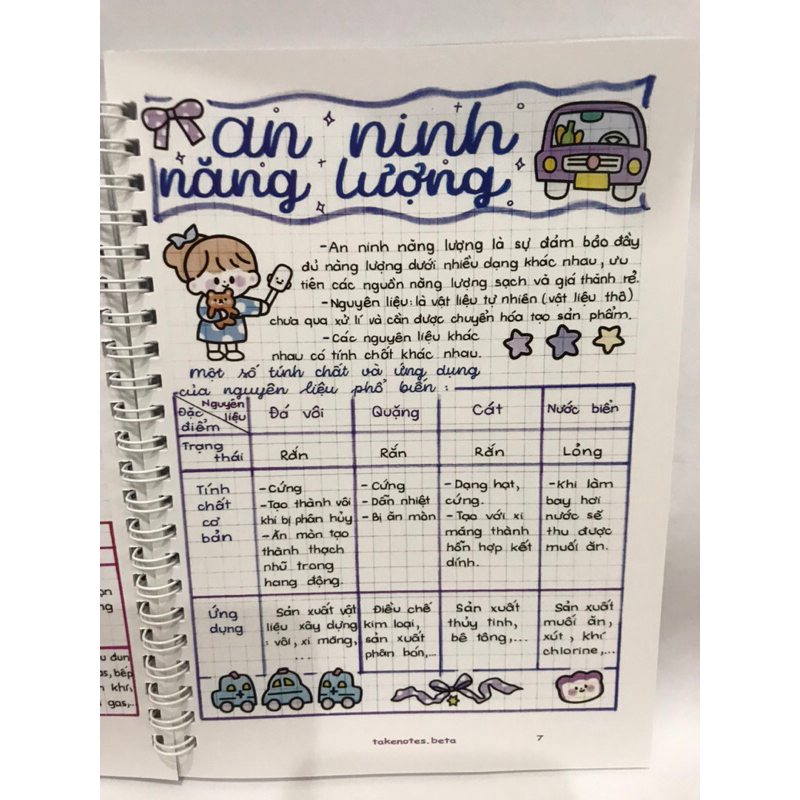 an ninh
năng lượng
-An ninh năng lượng là sự đảm bảo đầy
đủ năng lượng dưới nhiều dạng khác nhau, ưu
tiên các nguồn năng lượng sạch và giá thành rẻ.
-Nguyên liệu: là vật liệu tự nhiên (vật liệu thô)
chưa qua xử lí và cần được chuyển hóa tạo sản phẩm.
-Các nguyên liệu khác
nhau có tính chất khác nhau.
một số tính chất và ứng dụng
của nguyên liệu phổ biến:
Nguyên
liệu
Đặc
điểm
Đá vôi
Quặng
Cát
Nước biển
Trạng
thái
Rắn
Rắn
Rắn
Lỏng
Tính
chất
cơ
bản
-Cứng
-Tạo thành vôi
khi bị phân hủy
-Ăn mòn tạo
thành thạch
nhũ trong
hang động.
-Cứng
-Dẫn nhiệt
-Bị ăn mòn
-Dạng hạt,
cứng.
-Tạo với xi
măng thành
hỗn hợp kết
dính.
-Khi làm
bay hơi
nước sẽ
thu được
muối ăn.
Ứng
dụng
Sản xuất vật
liệu xây dựng
: vôi, xi măng,
...
Điều chế
kim loại,
sản xuất
phân bón,...
Sản xuất
thủy tinh,
bê tông,...
Sản xuất
muối ăn,
xút, khí
chlorine,...
takenotes.beta
7
đun
bếp
khí,
gas,..